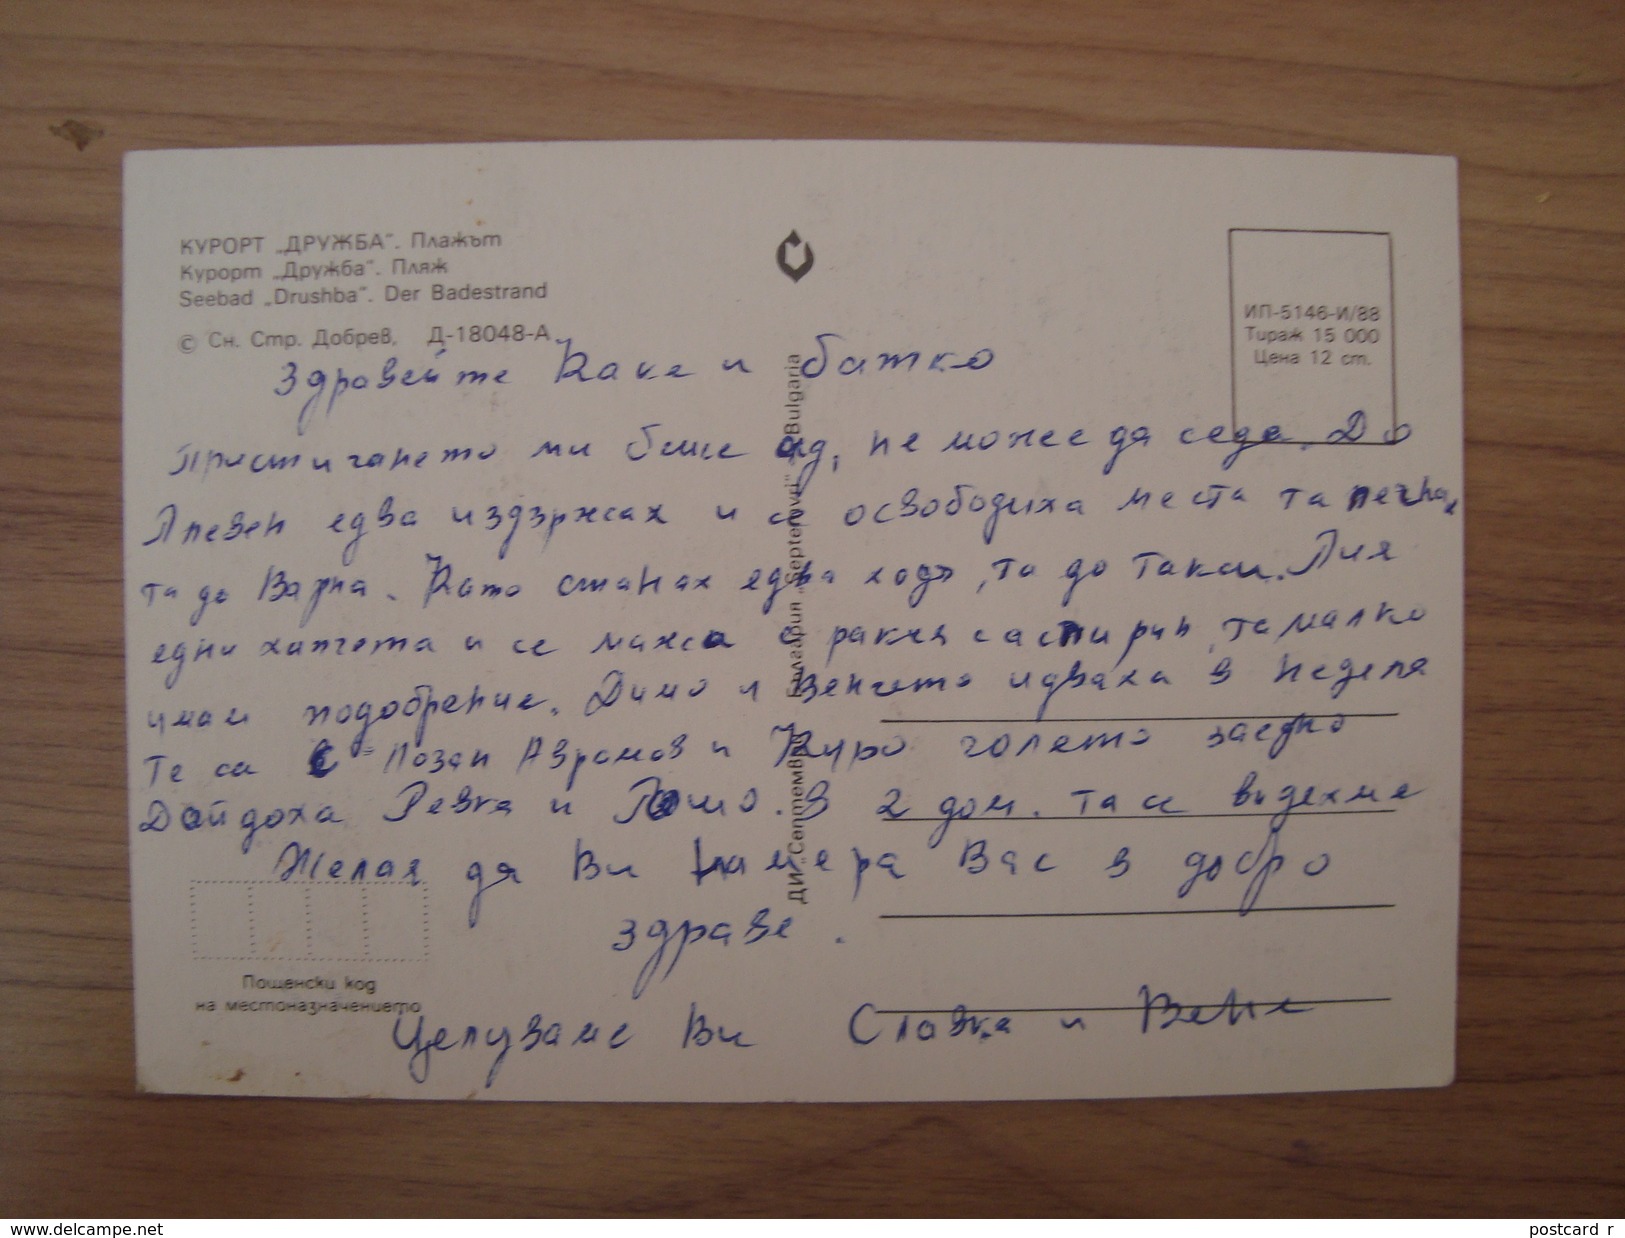 КУРОРТ „ДРУЖБА“. Плажът
Курорт „Дружба“. Пляж
Seebad „Drushba“. Der Badestrand
© Сн. Стр. Добрев, Д-18048-А
ИП-5146-И/88
Тираж 15 000
Цена 12 ст.
ДИ „Септември“ България „Septemvri“ Bulgaria
Здравейте Како и батко
Пристигането ми беше ад, не можее да седа. До
Плевен едва издзржах и се освободиха места та легнах
та до Варна. Като станах едва ходя, та до такси. Пия
едни хапчета и се мажа с ракия с аспирин, та малко
имам подобрение. Димо и Венчето идваха в неделя
Те са с Лозан Аврамов и Киро голето заедно
Дойдоха Ревка и Гошо. В 2 дом. та се видехме
Желая да Ви намера Вас в добро
здраве.
Целуваме Ви Славка и Вене
Пощенски код
на местоназначението
www.delcampe.net
postcard_r